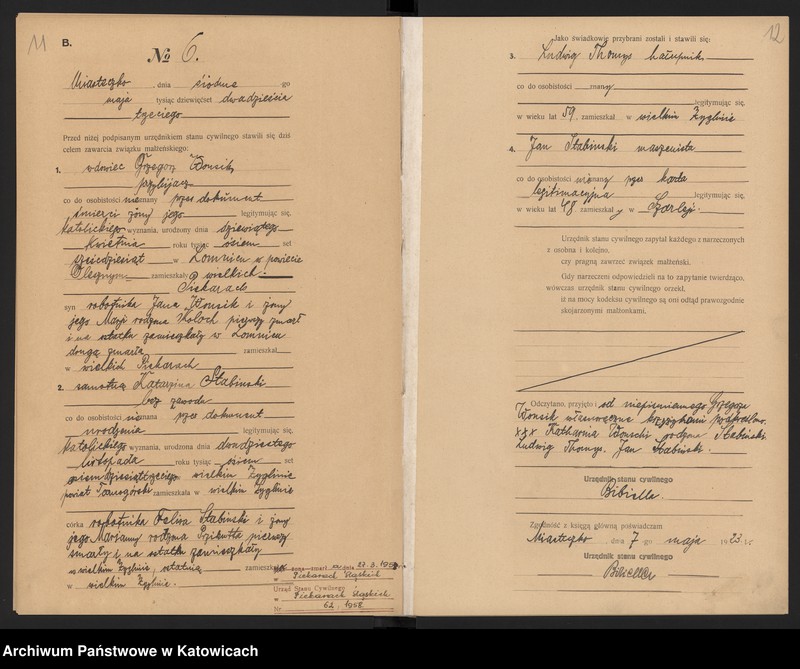 11
B.
№ 6.
Miasteczko, dnia siódme go
maja tysiąc dziewięćset dwadzieścia
trzeciego
Przed niżej podpisanym urzędnikiem stanu cywilnego stawili się dziś
celem zawarcia związku małżeńskiego:
1. wdowiec Grzegorz
co do osobistości nieznany przez dokument
śmierci żony jego legitymując się,
katolickiego wyznania, urodzony dnia dziewiątego
kwietnia roku tysiąc ośiem set
sześcdziesiąt w Łomnicu w powiecie
zamieszkały w wielkich
Piekarach
syn robotnika Jana i żony
jego Marji rodzona Koloch pierwszy zmarł
i na ostatku zamieszkały w Łomnicu
druga zmarła zamieszkał
w wielkich Piekarach
2. samotna Katarzyna Stabinski
bez zawodu
co do osobistości nieznana przez dokument
urodzenia legitymując się,
katolickiego wyznania, urodzona dnia dwudziestego
listopada roku tysiąc ośiem set
wielkim Żyglinie
powiat Tarnogórski zamieszkała w wielkim Żyglinie
córka robotnika Feliva Stabinski i żony
jego Marianny rodzona pierwszy
zmarły i na ostatku zamieszkały
w wielkim Żyglinie, ostatnia zamieszkał
w wielkim Żyglinie.
zmarł dnia 27.3.1958
w Piekarach Śląskich
Urząd Stanu Cywilnego
w Piekarach Śląskich
Nr. 62/1958
12
Jako świadkowie przybrani zostali i stawili się:
3. Ludwig Thomys hałupnik
co do osobistości znany
legitymując się,
w wieku lat 59, zamieszkał w wielkim Żyglinie
4. Jan Stabinski maszenista
co do osobistości nieznany przez karta
legitimacyjna legitymując się,
w wieku lat 48 zamieszkały w Szarleju.
Urzędnik stanu cywilnego zapytał każdego z narzeczonych
z osobna i kolejno,
czy pragną zawrzeć związek małżeński.
Gdy narzeczeni odpowiedzieli na to zapytanie twierdząco,
wówczas urzędnik stanu cywilnego orzekł,
iż na mocy kodeksu cywilnego są oni odtąd prawozgodnie
skojarzonymi małżonkami.
Odczytano, przyjęto i od niepismiennego Grzegorza
własnoręczne krzyżykami podkreślono.
xxx Katharina rodzona Stabinski.
Ludwig Thomys. Jan Stabinski.
Urzędnik stanu cywilnego
Bibiella.
Zgodność z księgą główną poświadczam
Miasteczko, dnia 7 go maja 1923 r.
Urzędnik stanu cywilnego
Bibiella
Archiwum Państwowe w Katowicach